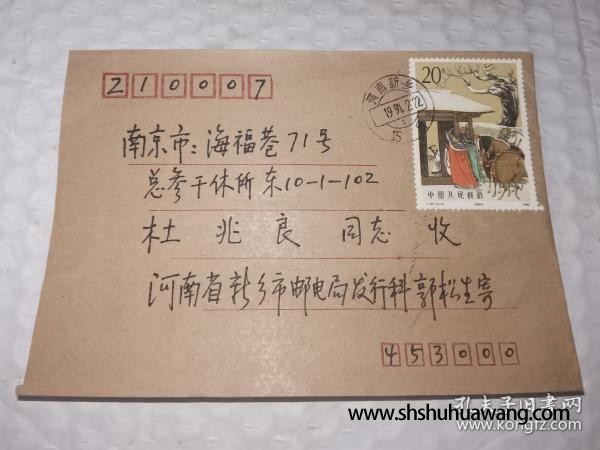 210007
20
河南新乡
1991.2.22
15
南京市：海福巷71号
总参干休所东10-1-102
中国人民邮政
杜兆良同志 收
河南省新乡市邮电局发行科郭松生寄
453000
孔夫子旧书网
www.shshuhuawang.com
www.kongfz.com